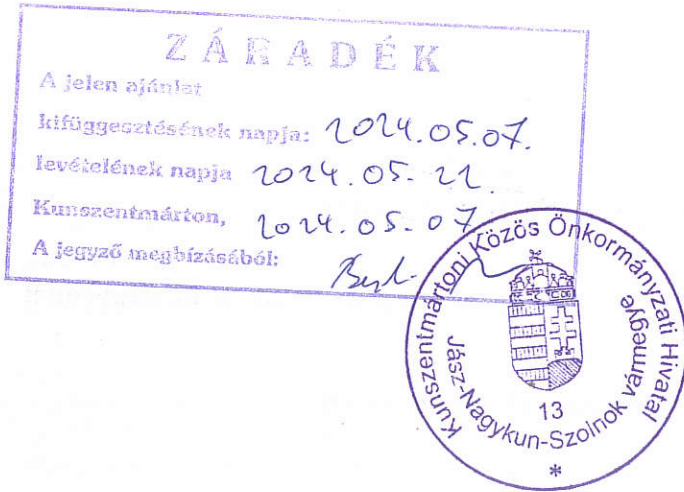 ZÁRADÉK
A jelen ajánlat
kifüggesztésének napja: 2024.05.07.
levételének napja 2024.05.22.
Kunszentmárton, 2024.05.07
A jegyző megbízásából:
Kunszentmártoni Közös Önkormányzati Hivatal
Jász-Nagykun-Szolnok vármegye
13
*